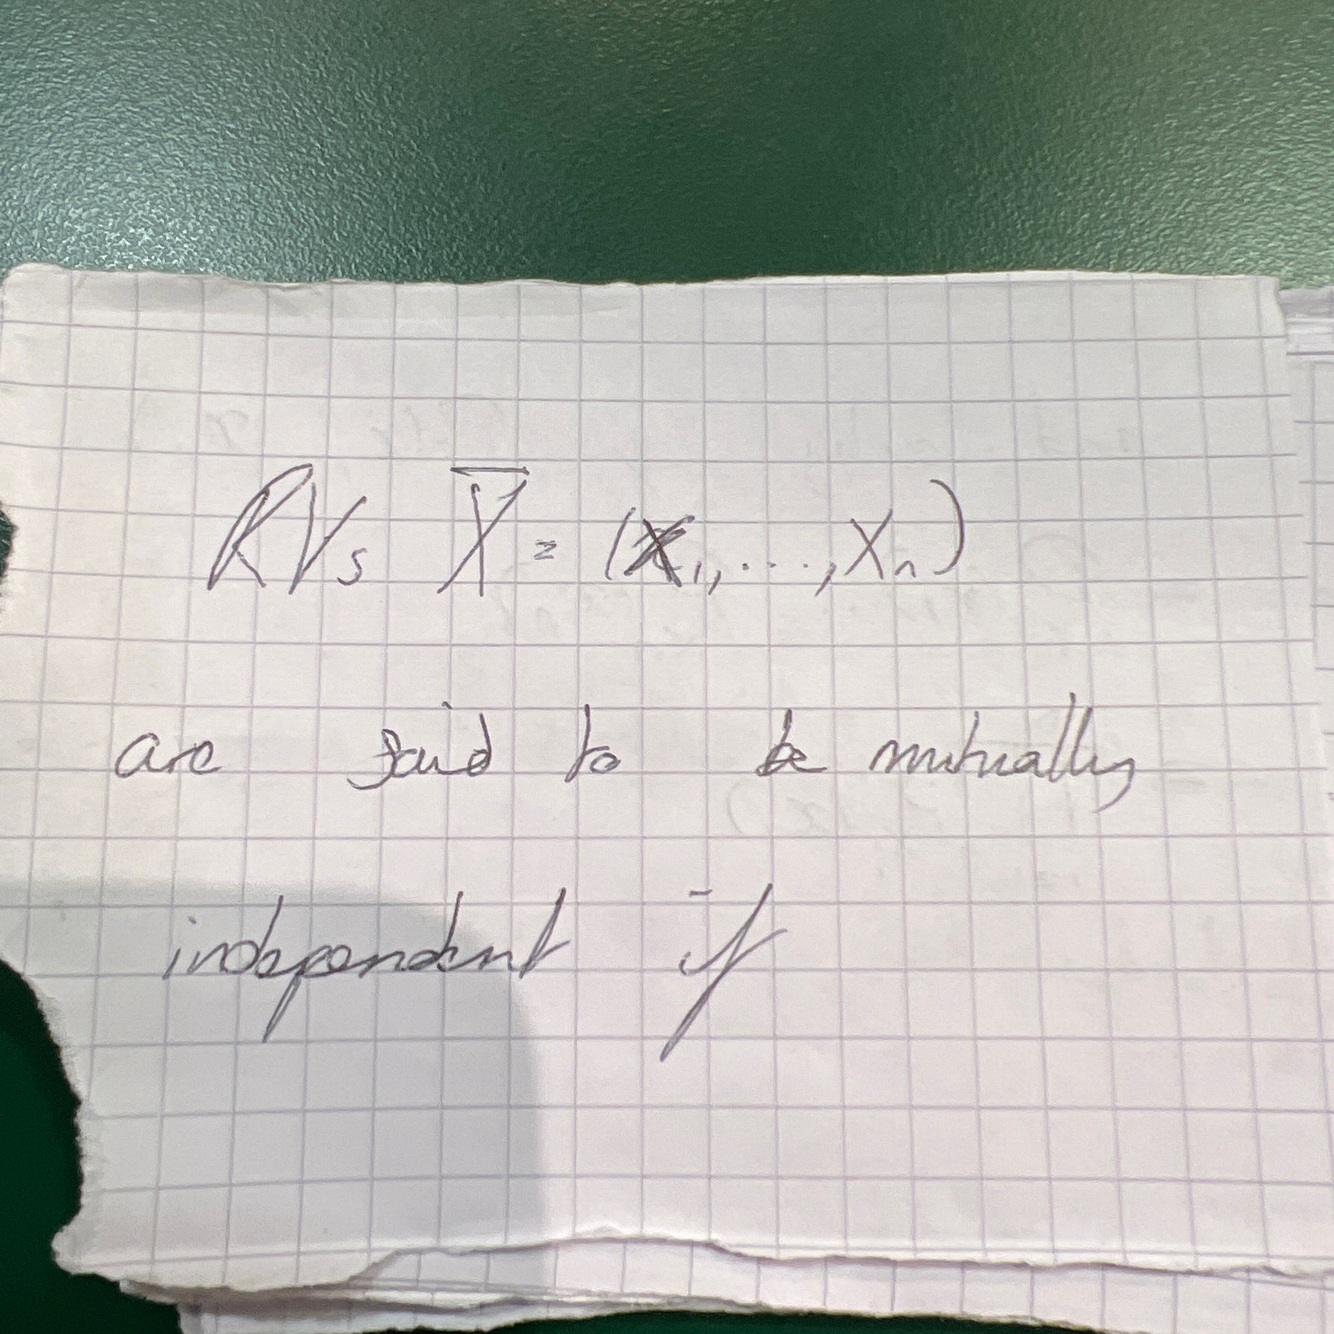 RVs X̅ = (X₁, ..., Xₙ)
are said to be mutually
independent if